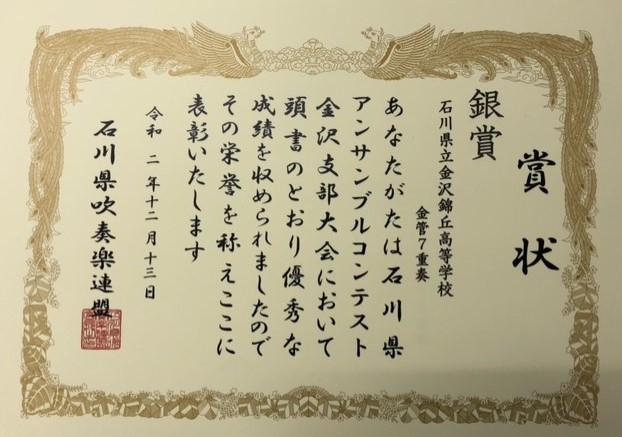 賞状
銀賞
石川県立金沢錦丘高等学校
金管7重奏
あなたがたは石川県
アンサンブルコンテスト
金沢支部大会において
頭書のとおり優秀な
成績を収められましたので
その栄誉を称えここに
表彰いたします
令和二年十二月十三日
石川県吹奏楽連盟